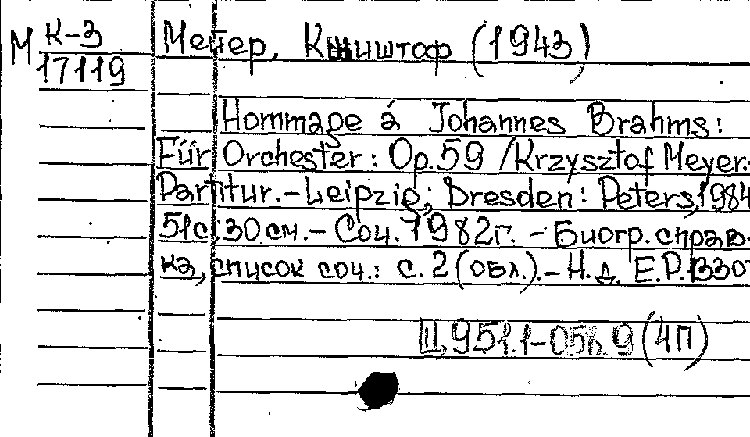 М К-3
17119
Мейер, Кшиштоф (1943)
Hommage á Johannes Brahms:
Für Orchester: Op.59 /Krzysztof Meyer.
Partitur.-Leipzig; Dresden: Peters, 1984
51с. 30см.-Соч. 1982г. - Биогр. справ-
ка, список соч.: с. 2 (обл.).-Н.д. Е.Р.
Щ951.1-05 9(4П)